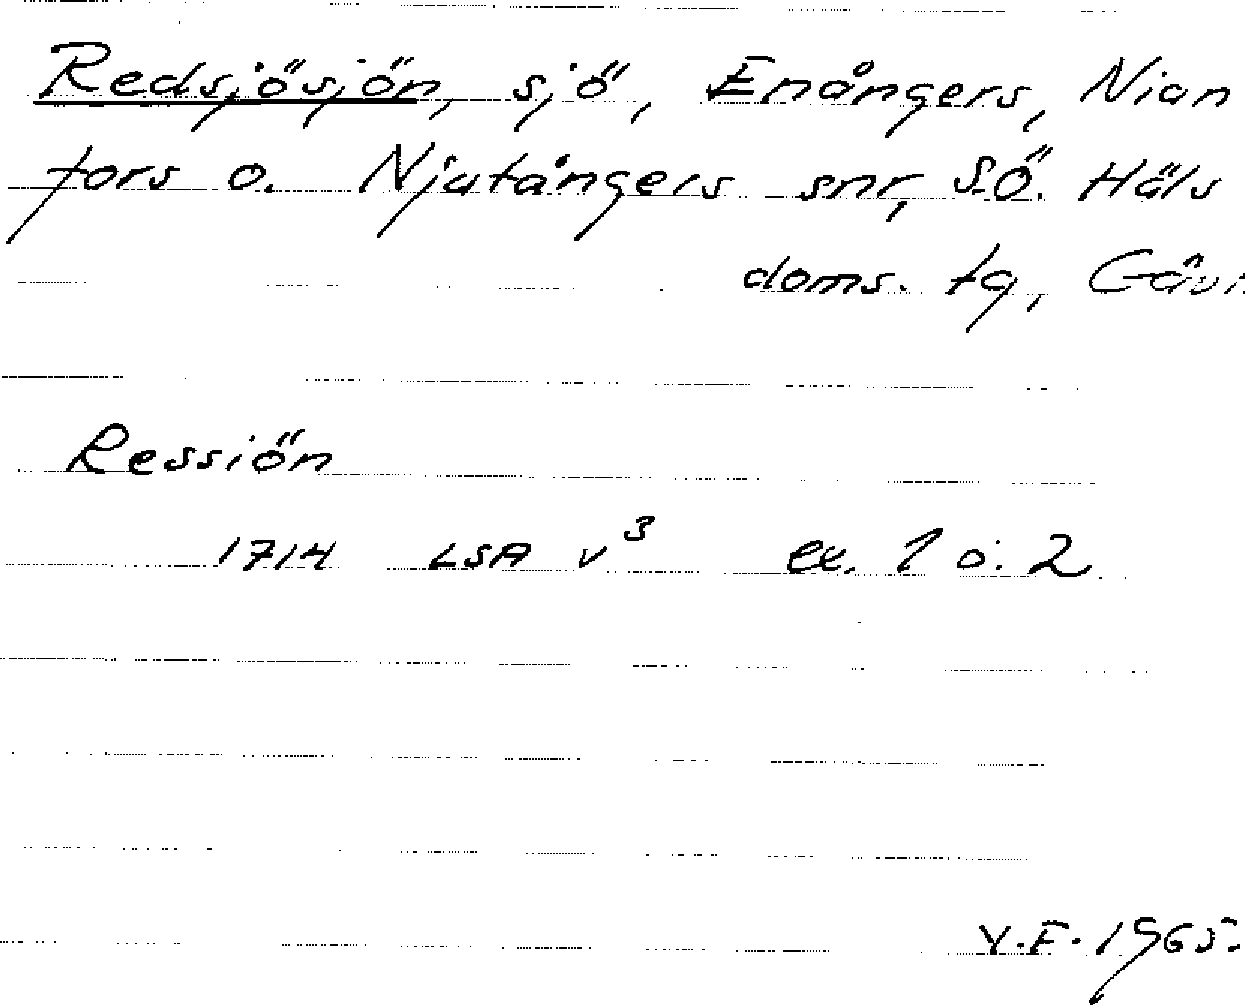 Redsjösjön, sjö, Enångers, Nian
fors o. Njutångers snr, SÖ. Häls
doms. tg, Gävl
Ressiön
1714 LSA v³ ex. 1 o. 2
Y.F. 1965.